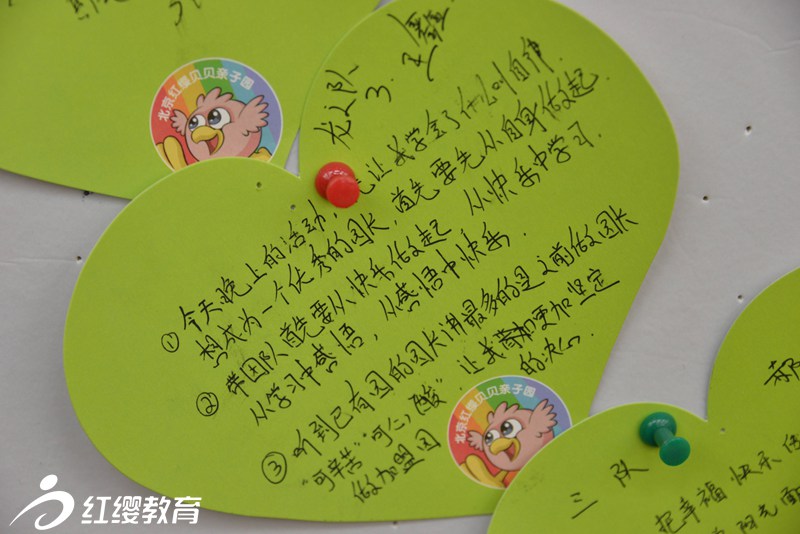 北京红缨贝贝亲子园
龙之队
3.
①今天晚上的活动,让我学会了什么叫自律.
想成为一个优秀的园长,首先要先从自身做起.
②带团队首先要从快乐做起 从快乐中学习.
从学习中感悟,从感悟中快乐.
③听到已有园的园长讲最多的是之前做过园长
"可辛苦"可心"酸",让我更加坚定
做加盟园 的决心.
北京红缨贝贝亲子园
三队
把幸福快乐
红缨教育